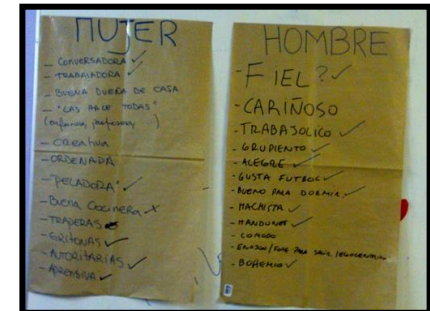 MUJER
- CONVERSADORA ✓
- TRABAJADORA ✓
- BUENA DUEÑA DE CASA
- "LAS HACE TODAS"
(enfermera, profesora, )
- creativa
- ORDENADA
- "PELADORA" ✓
- Buena Cocinera ✗
- TRAPERAS
- GRITONAS ✓
- AUTORITARIAS ✓
- APRENSIVA ✓
HOMBRE
- FIEL? ✓
- CARIÑOSO
- TRABAJOLICO ✓
- GRUPIENTO ✓
- ALEGRE ✓
- GUSTA FUTBOL ✓
- BUENO PARA DORMIR ✓
- MACHISTA ✓
- MANDONES ✓
- COMODO
- BOHEMIO ✓